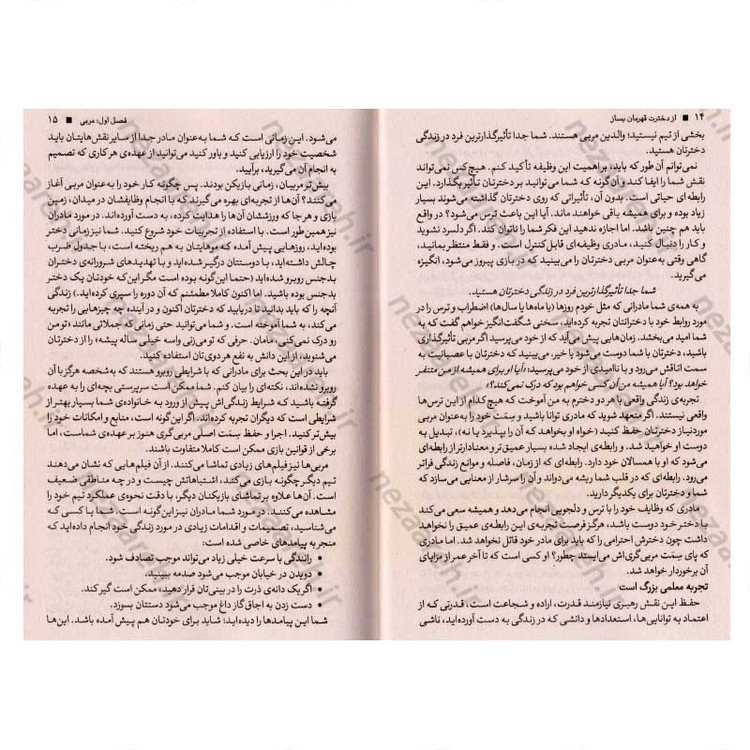 ۱۴ ■ از دخترت قهرمان بساز
بخشی از تیم نیستید؛ والدین مربی هستند. شما جدا تأثیرگذارترین فرد در زندگی
دخترتان هستید.
نمی‌توانم آن طور که باید، براهمیت این وظیفه تأکید کنم. هیچ‌کس نمی‌تواند
نقش شما را ایفا کند و آن‌گونه که شما می‌توانید بر دخترتان تأثیر بگذارد. این
رابطه‌ای حیاتی است. بدون آن، تأثیراتی که روی دخترتان گذاشته می‌شوند بسیار
زیاد بوده و برای همیشه باقی خواهند ماند. آیا این باعث ترس می‌شود؟ در واقع
باید هم چنین باشد. اما اجازه ندهید این فکر شما را ناتوان کند. اگر دلسرد نشوید
و کار را دنبال کنید، مادری وظیفه‌ای قابل‌کنترل است. و فقط منتظر بمانید،
گاهی وقتی به‌عنوان مربی دخترتان را می‌بینید که در بازی پیروز می‌شود، انگیزه
می‌گیرید.
شما جدا تأثیرگذارترین فرد در زندگی دخترتان هستید.
به همه‌ی شما مادرانی که مثل خودم روزها (یا ماه‌ها یا سال‌ها) اضطراب و ترس را در
مورد روابط خود با دخترانتان تجربه کرده‌اید، سخنی شگفت‌انگیز خواهم گفت که به
شما امید می‌بخشد. زمان‌هایی پیش می‌آید که از خود می‌پرسید اگر مربی تأثیرگذاری
باشید، دخترتان با شما دوست می‌شود یا خیر. می‌بینید که دخترتان با عصبانیت به
سمت اتاقش می‌رود و با ناامیدی از خودتان می‌پرسید: آیا او برای همیشه از من متنفر
خواهد بود؟ آیا همیشه من آن کسی خواهم بود که درک نمی‌کند؟
تجربه‌ی زندگی واقعی با هر دو دخترم به من آموخت که هیچ کدام از این ترس‌ها
واقعی نیستند. اگر متعهد شوید که مادری توانا باشید و سِمَت خود را به‌عنوان مربی
موردنیاز دخترتان حفظ کنید (خواه او بخواهد که آن را بپذیرد یا نه)، تبدیل به
دوست او خواهید شد. و رابطه‌ای ایجاد شده بسیار عمیق‌تر و معنادارتر از رابطه‌ای
می‌شود که او با همسالان خود دارد. رابطه‌ای که از زمان، فاصله و موانع زندگی فراتر
می‌رود. رابطه‌ای که در قلب شما ریشه می‌دواند و آن را سرشار از معنایی می‌سازد که
شما و دخترتان برای یکدیگر دارید.
مادری که وظایف خود را با ترس و دلجویی انجام می‌دهد و همیشه سعی می‌کند
با دختر خود دوست باشد، هرگز فرصت تجربه‌ی این رابطه‌ی عمیق را نخواهد
داشت چون دخترش احترامی را که باید برای مادر خود قائل نخواهد شد. اما مادری
که پای سِمَت مربی‌گری‌اش می‌ایستد چطور؟ او کسی است که تا آخر عمر از مزایای
آن برخوردار خواهد شد.
تجربه معلمی بزرگ است
حفظ این نقش رهبری نیازمند قدرت، اراده و شجاعت است، قدرتی که از
اعتماد به توانایی‌ها، استعدادها و دانشی که در زندگی به دست آورده‌اید، ناشی
فصل اول: مربی ■ ۱۵
می‌شود. این زمانی است که شما به‌عنوان مادر جدا از سایر نقش‌هایتان باید
شخصیت خود را ارزیابی کنید و باور کنید می‌توانید از عهده‌ی هر کاری که تصمیم
به انجام آن می‌گیرید، برآیید.
بیش‌تر مربیان، زمانی بازیکن بودند. پس چگونه کار خود را به‌عنوان مربی آغاز
می‌کنند؟ آن‌ها از تجربه‌ای بهره می‌گیرند که با انجام وظایفشان در میدان، زمین
بازی و هر جا که ورزششان آن‌ها را هدایت کرده، به دست آورده‌اند. در مورد مادران
نیز همین‌طور است. با استفاده از تجربیات خود شروع کنید. شما نیز زمانی دختر
بوده‌اید، روزهایی پیش آمده که موهایتان به هم ریخته است، با جدول ضرب
چالش داشته‌اید، با دوستتان درگیر شده‌اید و با تهدیدهای شرورانه‌ی دختران
بدجنس روبرو شده‌اید (حتما این‌گونه بوده است مگر این‌که خودتان یک دختر
بدجنس بوده باشید. اما اکنون کاملا مطمئنم که آن دوره را سپری کرده‌اید.) زندگی
آنچه را که باید بدانید تا دریابید که دخترتان اکنون و در آینده چه چیزهایی را تجربه
می‌کند، به شما آموخته است. و شما می‌توانید حتی زمانی که جملاتی مانند «تو من
رو درک نمی‌کنی، مامان. حرفی که تو می‌زنی واسه خیلی ساله پیشه» را از دخترتان
می‌شنوید، از این دانش به نفع هر دوی‌تان استفاده کنید.
باید در این بحث برای مادرانی که با شرایطی روبرو هستند که به‌شخصه هرگز با آن
روبرو نشده‌اند، نکته‌ای را بیان کنم. شما ممکن است سرپرستی بچه‌ای را به عهده
گرفته باشید که شرایط زندگی‌اش پیش از ورود به خانواده‌ی شما بسیار بهتر از
شرایطی است که دیگران تجربه کرده‌اند. اگر این‌گونه است، منابع و امکانات خود را
بیش‌تر کنید. اجرا و حفظ سِمَت اصلی مربی‌گری هنوز بر عهده‌ی شماست، اما
برخی از قوانین بازی ممکن است کاملا متفاوت باشند.
مربی‌ها نیز فیلم‌های زیادی تماشا می‌کنند. از آن فیلم‌هایی که نشان می‌دهند
تیم دیگر چگونه بازی می‌کند، اشتباهاتش چیست و در چه مناطقی ضعیف
است. آن‌ها علاوه بر تماشای بازیکنان دیگر، با دقت نحوه‌ی عملکرد تیم خود را
مشاهده می‌کنند. در مورد شما مادران نیز این‌گونه است. شما یا کسی که
می‌شناسید، تصمیمات و اقدامات زیادی در مورد زندگی خود انجام داده‌اید که
منجر به پیامدهای خاصی شده است:
• رانندگی با سرعت خیلی زیاد می‌تواند موجب تصادف شود.
• دویدن در خیابان موجب می‌شود صدمه ببینید.
• اگر یک دانه‌ی ذرت را در بینی‌تان قرار دهید، ممکن است گیر کند.
• دست زدن به اجاق‌گاز داغ موجب می‌شود دستتان بسوزد.
شما این پیامدها را دیده‌اید؛ شاید برای خودتان هم پیش آمده باشد. این‌ها
nezaareh.ir